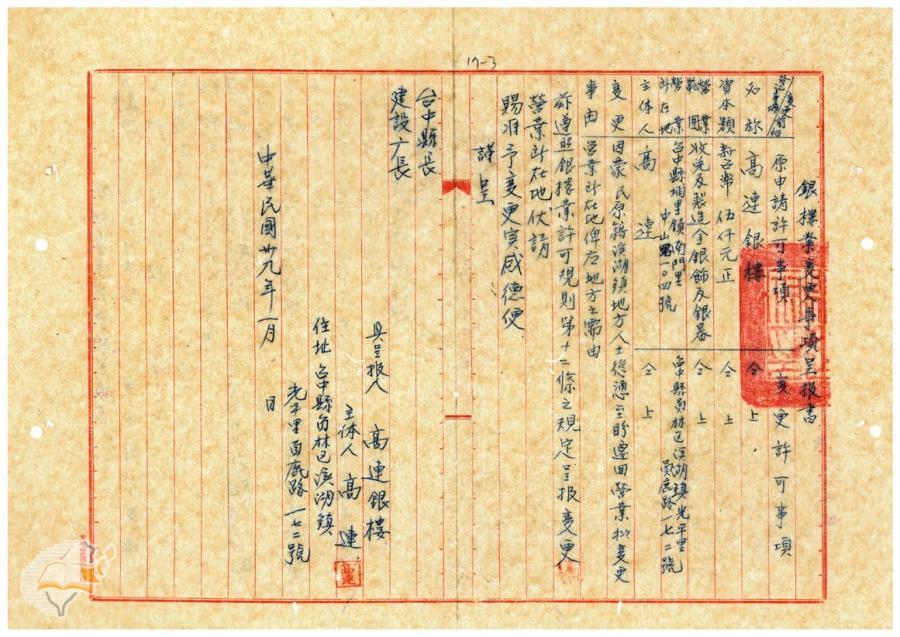 17-3
銀樓業变更事項呈报書
原申請許可事項 变更許可事項
名称 高連銀樓 仝上
資本額 新台幣 伍仟元正 仝上
營業範圍 收兌及製造金銀飾及銀器 仝上
營業所在地 台中縣埔里鎮南門里中山路一〇四號 台中縣員林区溪湖鎮光平里員鹿路一七二號
主体人 高連 仝上
变更 因蒙民原籍溪湖鎮地方人士慫慂至盼遷回營業拟变更
事由 營業所在地俾应地方之需由
茲遵照銀樓業許可規則第十二條之規定呈报变更
營業所在地伏請
賜准予变更实感德便
謹呈
台中縣長
建設廳長
具呈报人 高連銀樓
主体人 高連
住址 台中縣員林区溪湖鎮
光平里員鹿路一七二號
中華民國卅九年一月 日